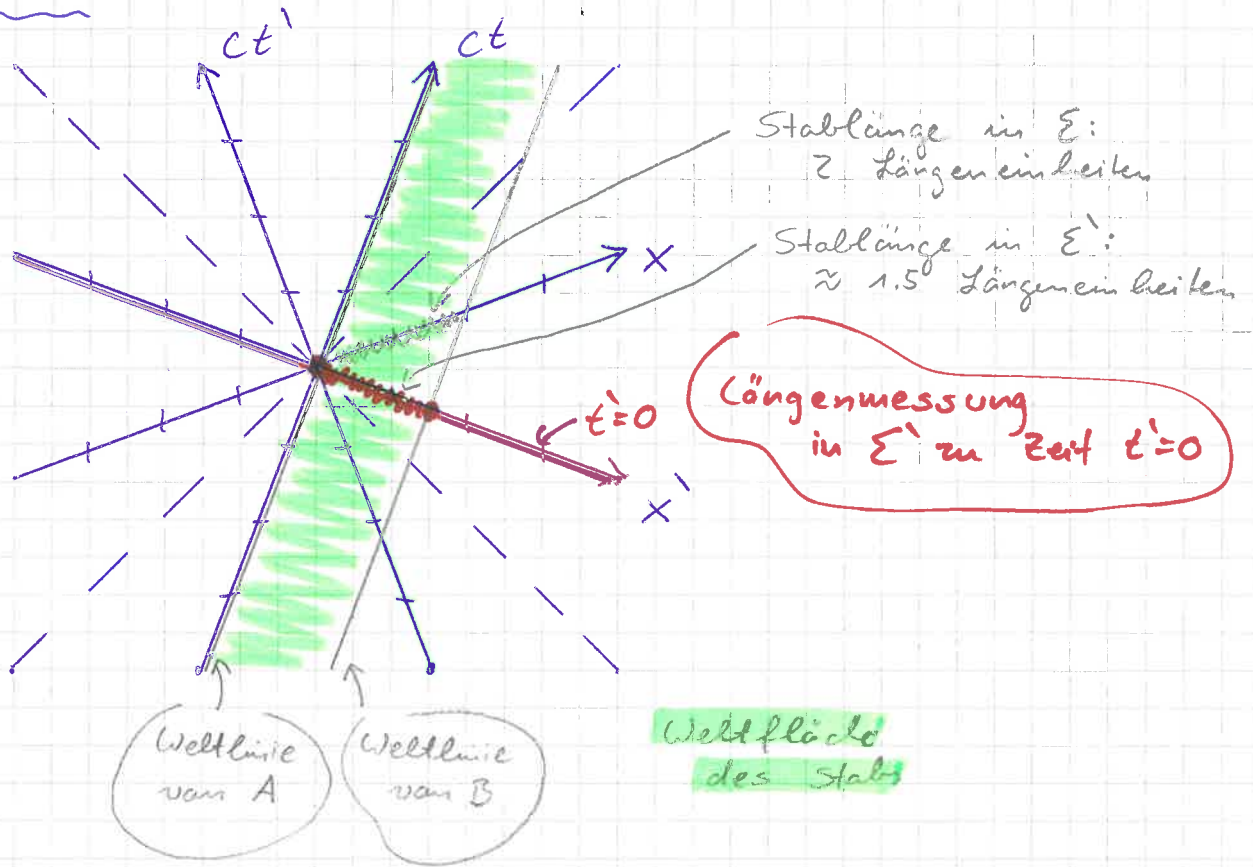 ct`
ct
Stablänge in Σ:
2 Längeneinheiten
x
Stablänge in Σ`:
≈ 1.5 Längeneinheiten
t`=0
Längenmessung
in Σ` zu Zeit t`=0
x`
Weltlinie
von A
Weltlinie
von B
Weltfläche
des Stabs